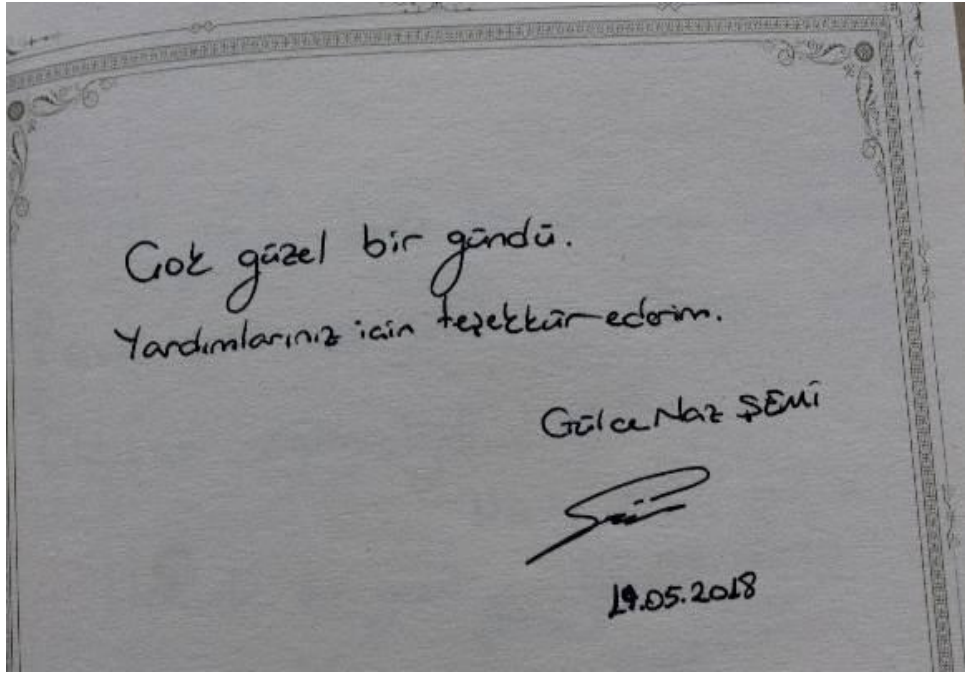 Çok güzel bir gündü.
Yardımlarınız için teşekkür ederim.
Gülce Naz ŞEMİ
19.05.2018